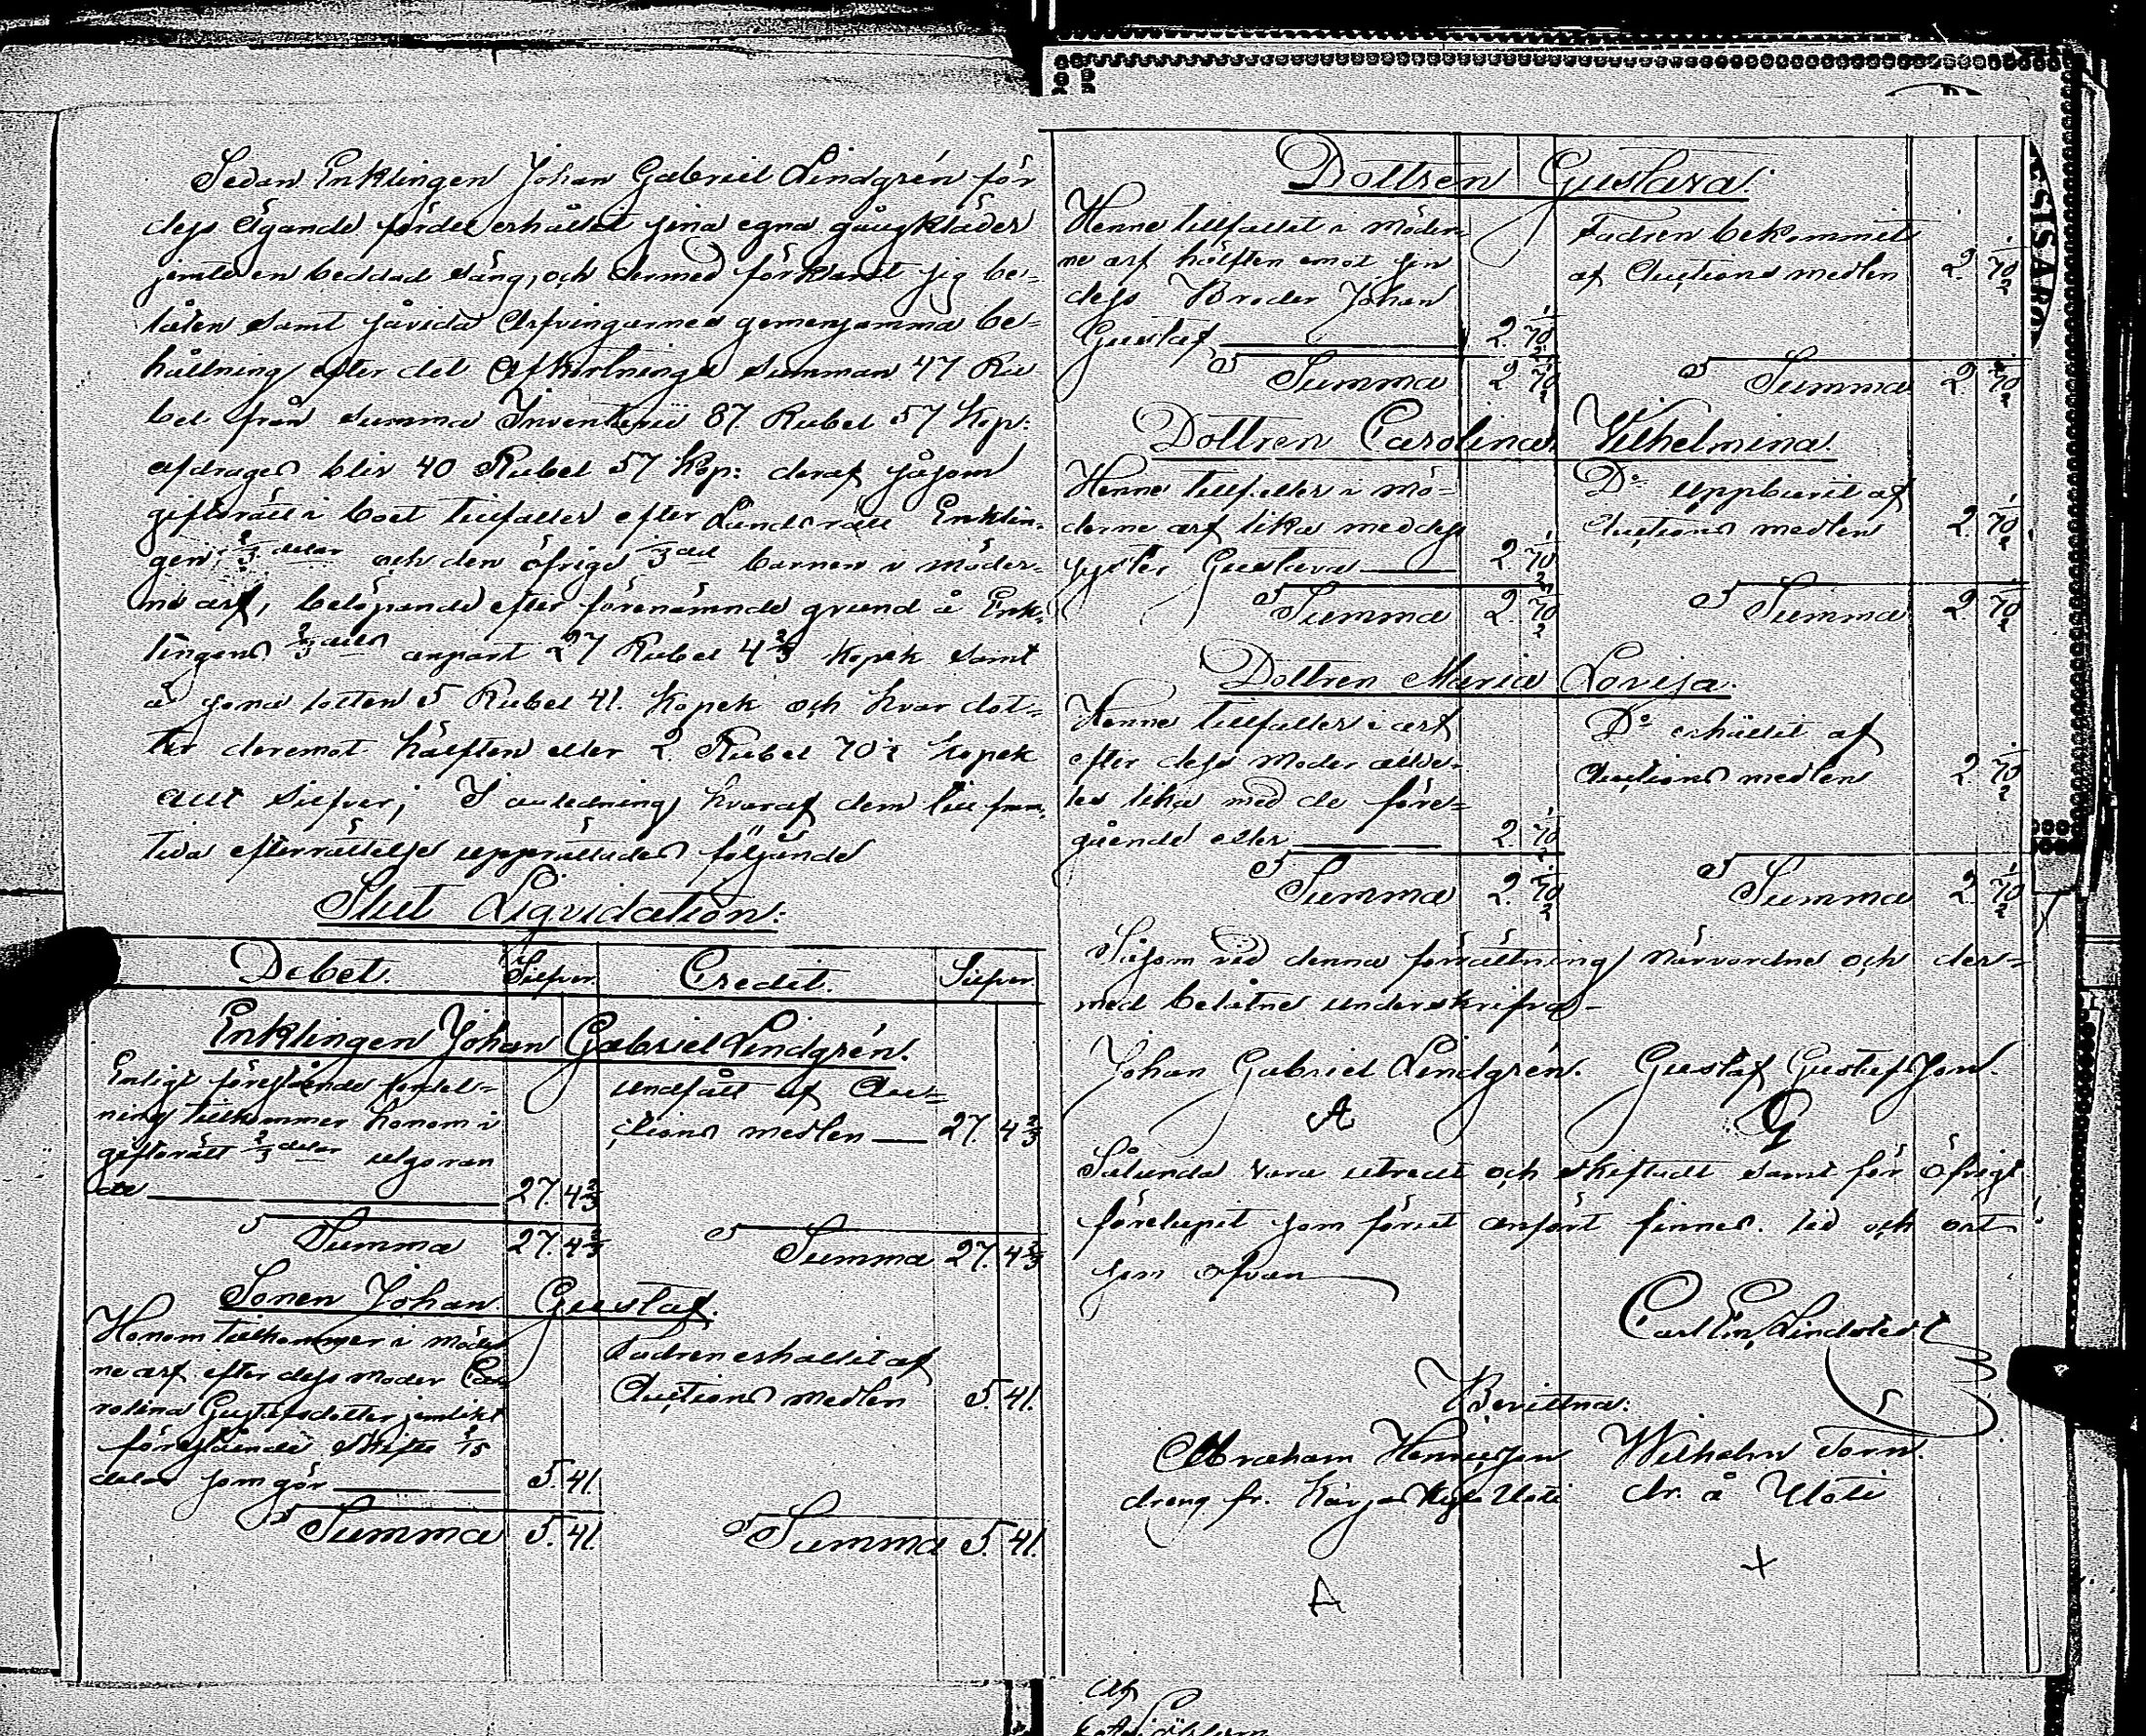 Sedan Enklingen Johan Gabriel Lindgrén för
dess Ägande fördel erhållit sina egna gångkläder
jemte en beddad säng, och dermed förklarat sig be=
låten samt såvida Arfvingarnes gemensamma be=
hållning efter det Afkortnings summan 47 Ru
bel från summa Inventarii 87 Rubel 57 Kop:
afdrages blir 40 Rubel 57 Kop: deraf såsom
giftorätt i boet tillfaller efter Landsrätt Enklin-
gen 2/3 delar och den öfriga 1/3 del barnen i möder-
ne arf, belöpande efter förenämnde grund å Enk-
lingens 2/3 delar anpart 27 Rubel 4 2/3 Kopek samt
å sona lotten 5 Rubel 41. Kopek och hvar dot=
ter deremot hälften eller 2. Rubel 70 1/2 Kopek
allt silfver; I anledning hvaraf dem till fram-
tida efterrättelse upprättades följande
Slut Liqvidation:
Debet. Silfver. Credit. Silfver.
Enklingen Johan Gabriel Lindgrén.
Enligt föregående fördel=
ning tillkommer honom i
giftorätt 2/3 delar utgöran
de 27. 4 2/3
Undfått af Auc=
tions medlen 27. 4 2/3
Summa 27. 4 2/3 Summa 27. 4 2/3
Sonen Johan Gustaf.
Honom tillkommer i möder
ne arf efter dess moder Ca
rolina Gustafsdotter jemlikt
föregående skifte 2/15
delar som gör 5. 41.
Fadren erhållit af
Auctions medlen 5. 41.
Summa 5. 41. Summa 5. 41.
Dottren Gustava.
Henne tillfallit i möder-
ne arf hälften emot sin
dess Broder Johan
Gustaf 2. 70 1/2
Fadren bekommit
af Auctions medlen 2. 70 1/2
Summa 2. 70 1/2 Summa 2. 70 1/2
Dottren Carolina Vilhelmina.
Henne tillfaller i mö=
derne arf lika med dess
syster Gustava 2. 70 1/2
Do uppburit af
Auctions medlen 2. 70 1/2
Summa 2. 70 1/2 Summa 2. 70 1/2
Dottren Maria Lovisa.
Henne tillfaller i arf
efter dess moder alldé-
les lika med de före=
gående eller 2. 70 1/2
Do erhållit af
Auctions medlen 2. 70 1/2
Summa 2. 70 1/2 Summa 2. 70 1/2
Såsom vid denna förrättning närvordne och der=
med belåtne underskrifva-
Johan Gabriel Lindgrén. Gustaf Gustafsson.
A G
Sålunda vara utredt och skiftadt samt för öfrigt
förelupit som förut anfört finnes. tid och ort
som ofvan
Carl Em. Lindstedt
Bevittna:
Abraham Henricsson Wilhelm Torn.
dreng fr. Uoti dr. å Uoti
A +
Af